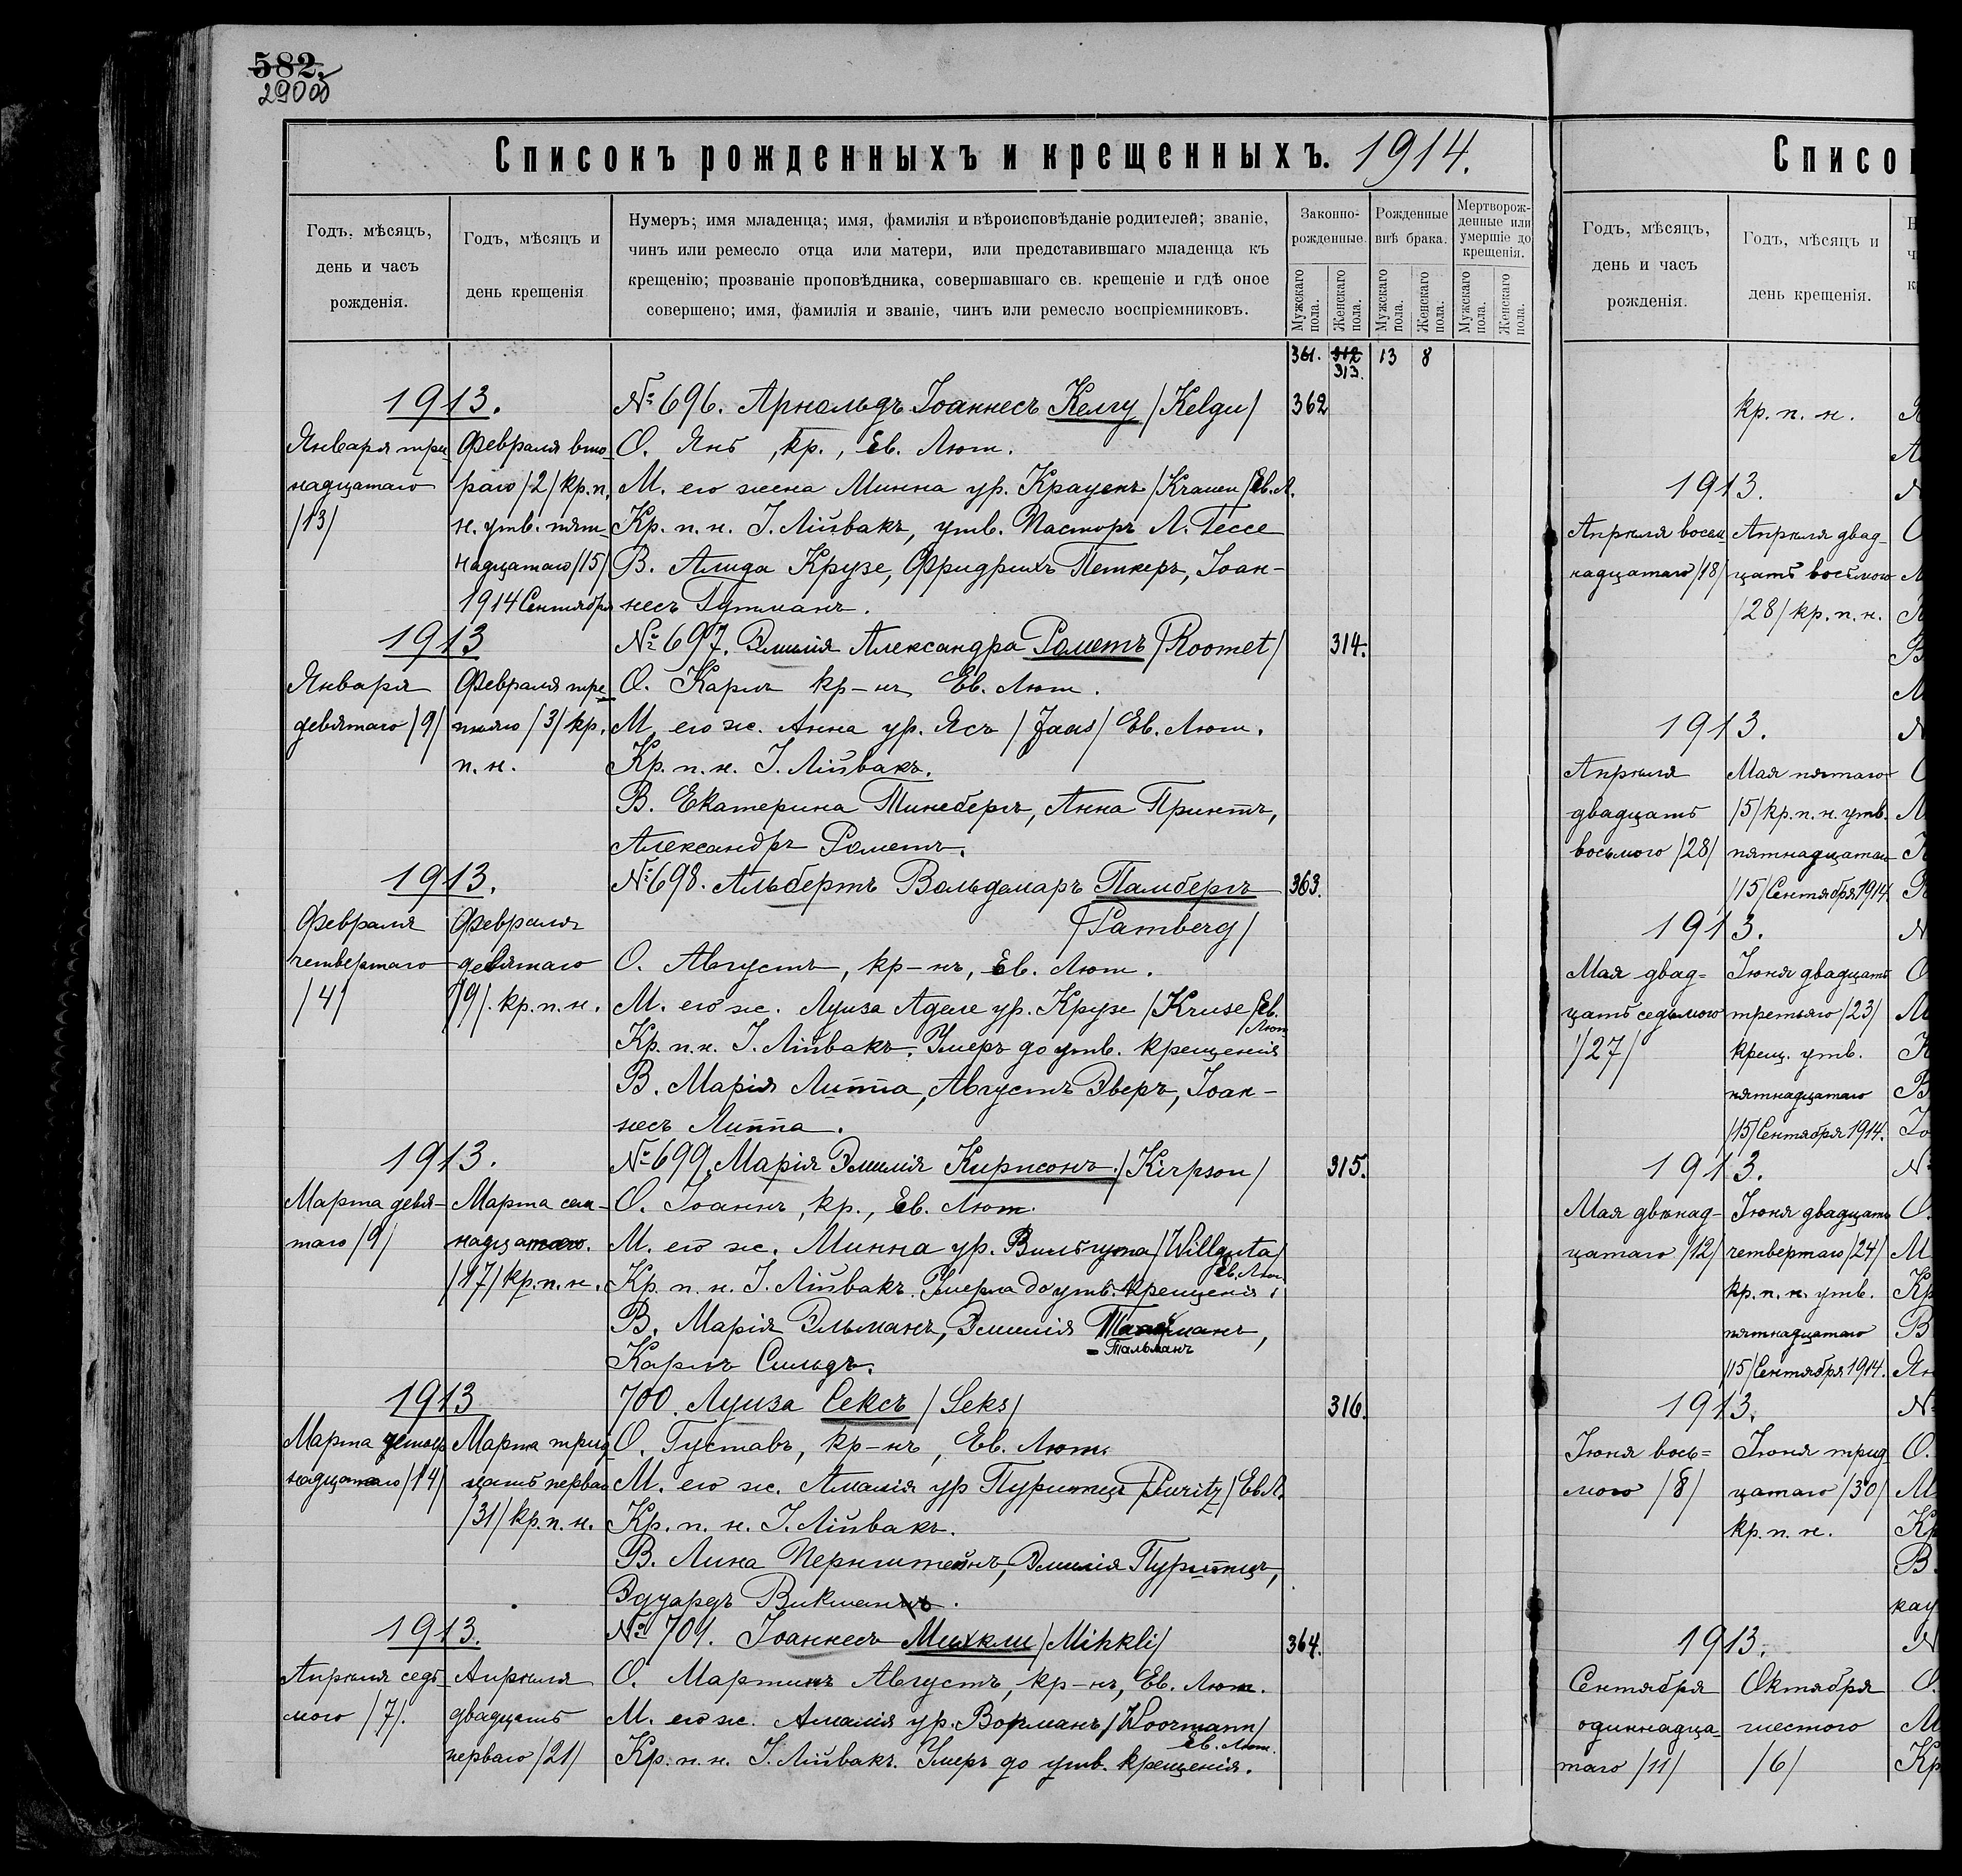 582.
290 об
Списокъ рожденныхъ и крещенныхъ. 1914.
Годъ, мѣсяцъ,
день и часъ
рожденія.
Годъ, мѣсяцъ и
день крещенія
Нумеръ; имя младенца; имя, фамилія и вѣроисповѣданіе родителей; званіе,
чинъ или ремесло отца или матери, или представившаго младенца къ
крещенію; прозваніе проповѣдника, совершавшаго св. крещеніе и гдѣ оное
совершено; имя, фамилія и званіе, чинъ или ремесло воспріемниковъ.
Законно-
рожденные.
Рожденные
внѣ брака.
Мертворож-
денные или
умершіе до
крещенія.
Мужскаго пола.
Женскаго пола.
Мужскаго пола.
Женскаго пола.
Мужскаго пола.
Женскаго пола.
361. 312 13 8
313.
1913.
Января три-
надцатаго
/13/
Февраля вто-
раго /2/ кр. п.
н. утв. пят-
надцатаго /15/
1914 Сентября
№ 696. Арнольдъ Іоаннесъ Келгу /Kelgu/ 362
О. Янъ, кр., Ев. Лют.
М. его жена Минна ур. Крауенъ /Krauen/ Ев. Л.
Кр. п. н. І. Лійвакъ, утв. Пасторъ Л. Гессе
В. Алида Крузе, Фридрихъ Петкеръ, Іоан-
несъ Гутманъ.
1913
Января
девятаго /9/
Февраля тре-
тьяго /3/ кр.
п. н.
№ 697. Эмилія Александра Рометъ /Roomet/ 314.
О. Карлъ кр-нъ Ев. Лют.
М. его ж. Анна ур. Ясъ /Jaas/ Ев. Лют.
Кр. п. н. І. Лійвакъ.
В. Екатерина Тинебергъ, Анна Принтъ,
Александръ Рометъ.
1913.
Февраля
четвертаго
/4/
Февраля
девятаго
/9/. кр. п. н.
№ 698. Альбертъ Вольдемаръ Памбергъ 363.
/Pamberg/
О. Августъ, кр-нъ, Ев. Лют.
М. его ж. Луиза Аделе ур. Крузе /Kruse/ Ев.
Лют
Кр. п. н. І. Лійвакъ. Умеръ до утв. крещенія
В. Марія Липпа, Августъ Эверъ, Іоан-
несъ Липпа.
1913.
Марта девя-
таго /9/
Марта сем-
надцатаго.
/17/ кр. п. н.
№ 699. Марія Эмилія Кирпсонъ. /Kirpson/ 315.
О. Іоаннъ, кр., Ев. Лют.
М. его ж. Минна ур. Вильгута /Willguta/
Ев. Лют
Кр. п. н. І. Лійвакъ. Умерла до утв. крещенія.
В. Марія Эльманъ, Эмилія манъ,
= Тальманъ
Карлъ Сильдъ.
1913
Марта четыр
надцатаго /14/
Марта трид
цать перваго
/31/ кр. п. н.
700. Луиза Сексъ /Seks/ 316.
О. Густавъ, кр-нъ, Ев. Лют.
М. его ж. Амалія ур Пуритцъ /Puritz/ Ев Л.
Кр. п. н. І. Лійвакъ.
В. Лина Пернштейнъ, Эмилія Пуритцъ,
Эдуардъ Викманъ.
1913.
Апрѣля седь-
мого /7/.
Апрѣля
двадцать
перваго /21/
№ 701. Іоаннесъ Михкли /Mihkli/ 364.
О. Мартинъ Августъ, кр-нъ, Ев. Лют.
М. его ж. Амалія ур. Ворманъ /Woormann/
Ев. Лют.
Кр. п. н. І. Лійвакъ. Умеръ до утв. крещенія.
Списо
Годъ, мѣсяцъ,
день и часъ
рожденія.
Годъ, мѣсяцъ и
день крещенія.
кр. п. н.
1913.
Апрѣля восем
надцатаго /18/
Апрѣля двад-
цать восьмого
/28/ кр. п. н.
1913.
Апрѣля
двадцать
восьмого /28/
Мая пятаго
/5/ кр. п. н. утв.
пятнадцатаго
/15/ Сентября 1914
1913.
Мая двад=
цать седьмого
/27/
Іюня двадцать
третьяго /23/
крещ. утв.
пятнадцатаго
/15/ Сентября 1914.
1913.
Мая двѣнад-
цатаго /12/
Іюня двадцать
четвертаго /24/
кр. п. н. утв.
пятнадцатаго
/15/ Сентября 1914.
1913.
Іюня вось=
мого /8/
Іюня трид
цатаго /30/
кр. п. н.
1913.
Сентября
одиннадца-
таго /11/
Октября
шестого
/6/